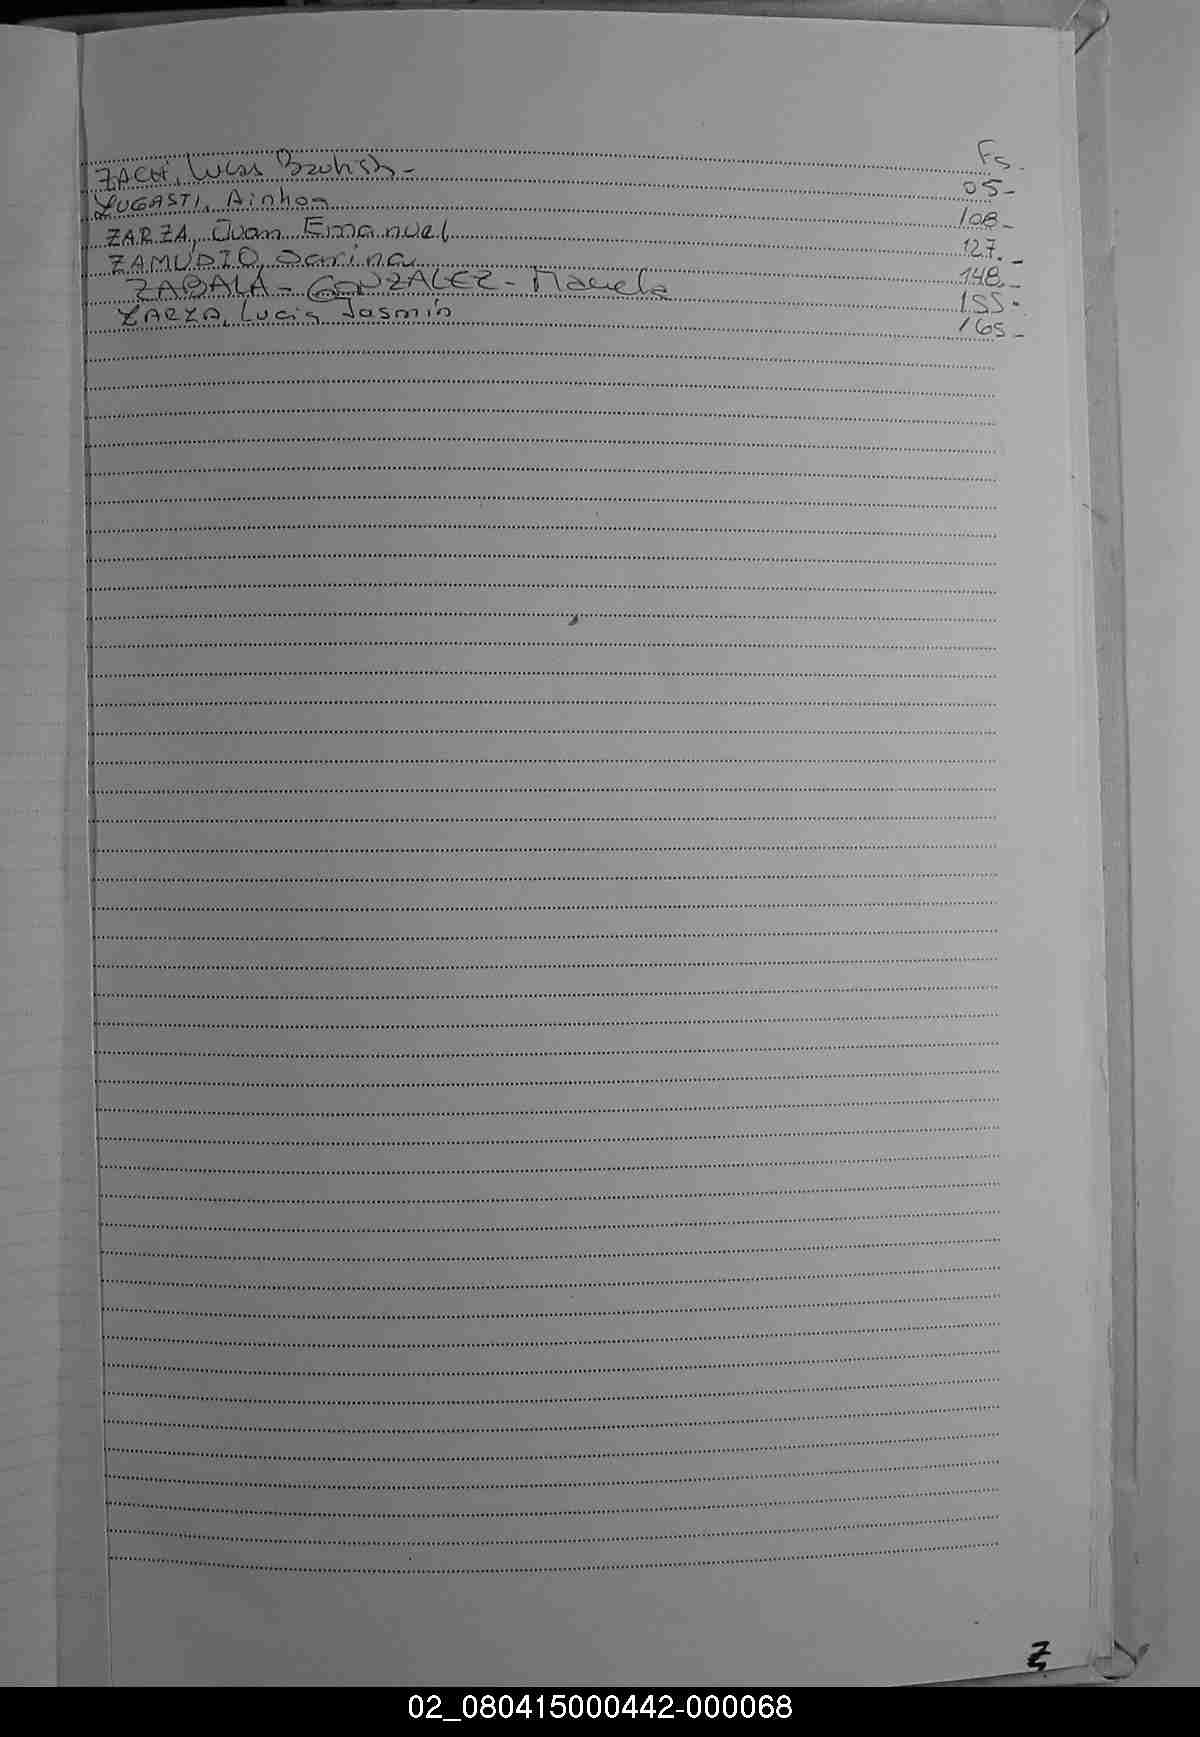 Fs.
ZACH, Lucas Bautista - 05-
ZUGASTI, Ainhoa 108-
ZARZA, Juan Emanuel 127.-
ZAMUDIO, Darina 148.-
ZABALA - GONZALEZ - Marcela 155-
ZARZA, Lucia Jasmin 165-
Z
02_080415000442-000068